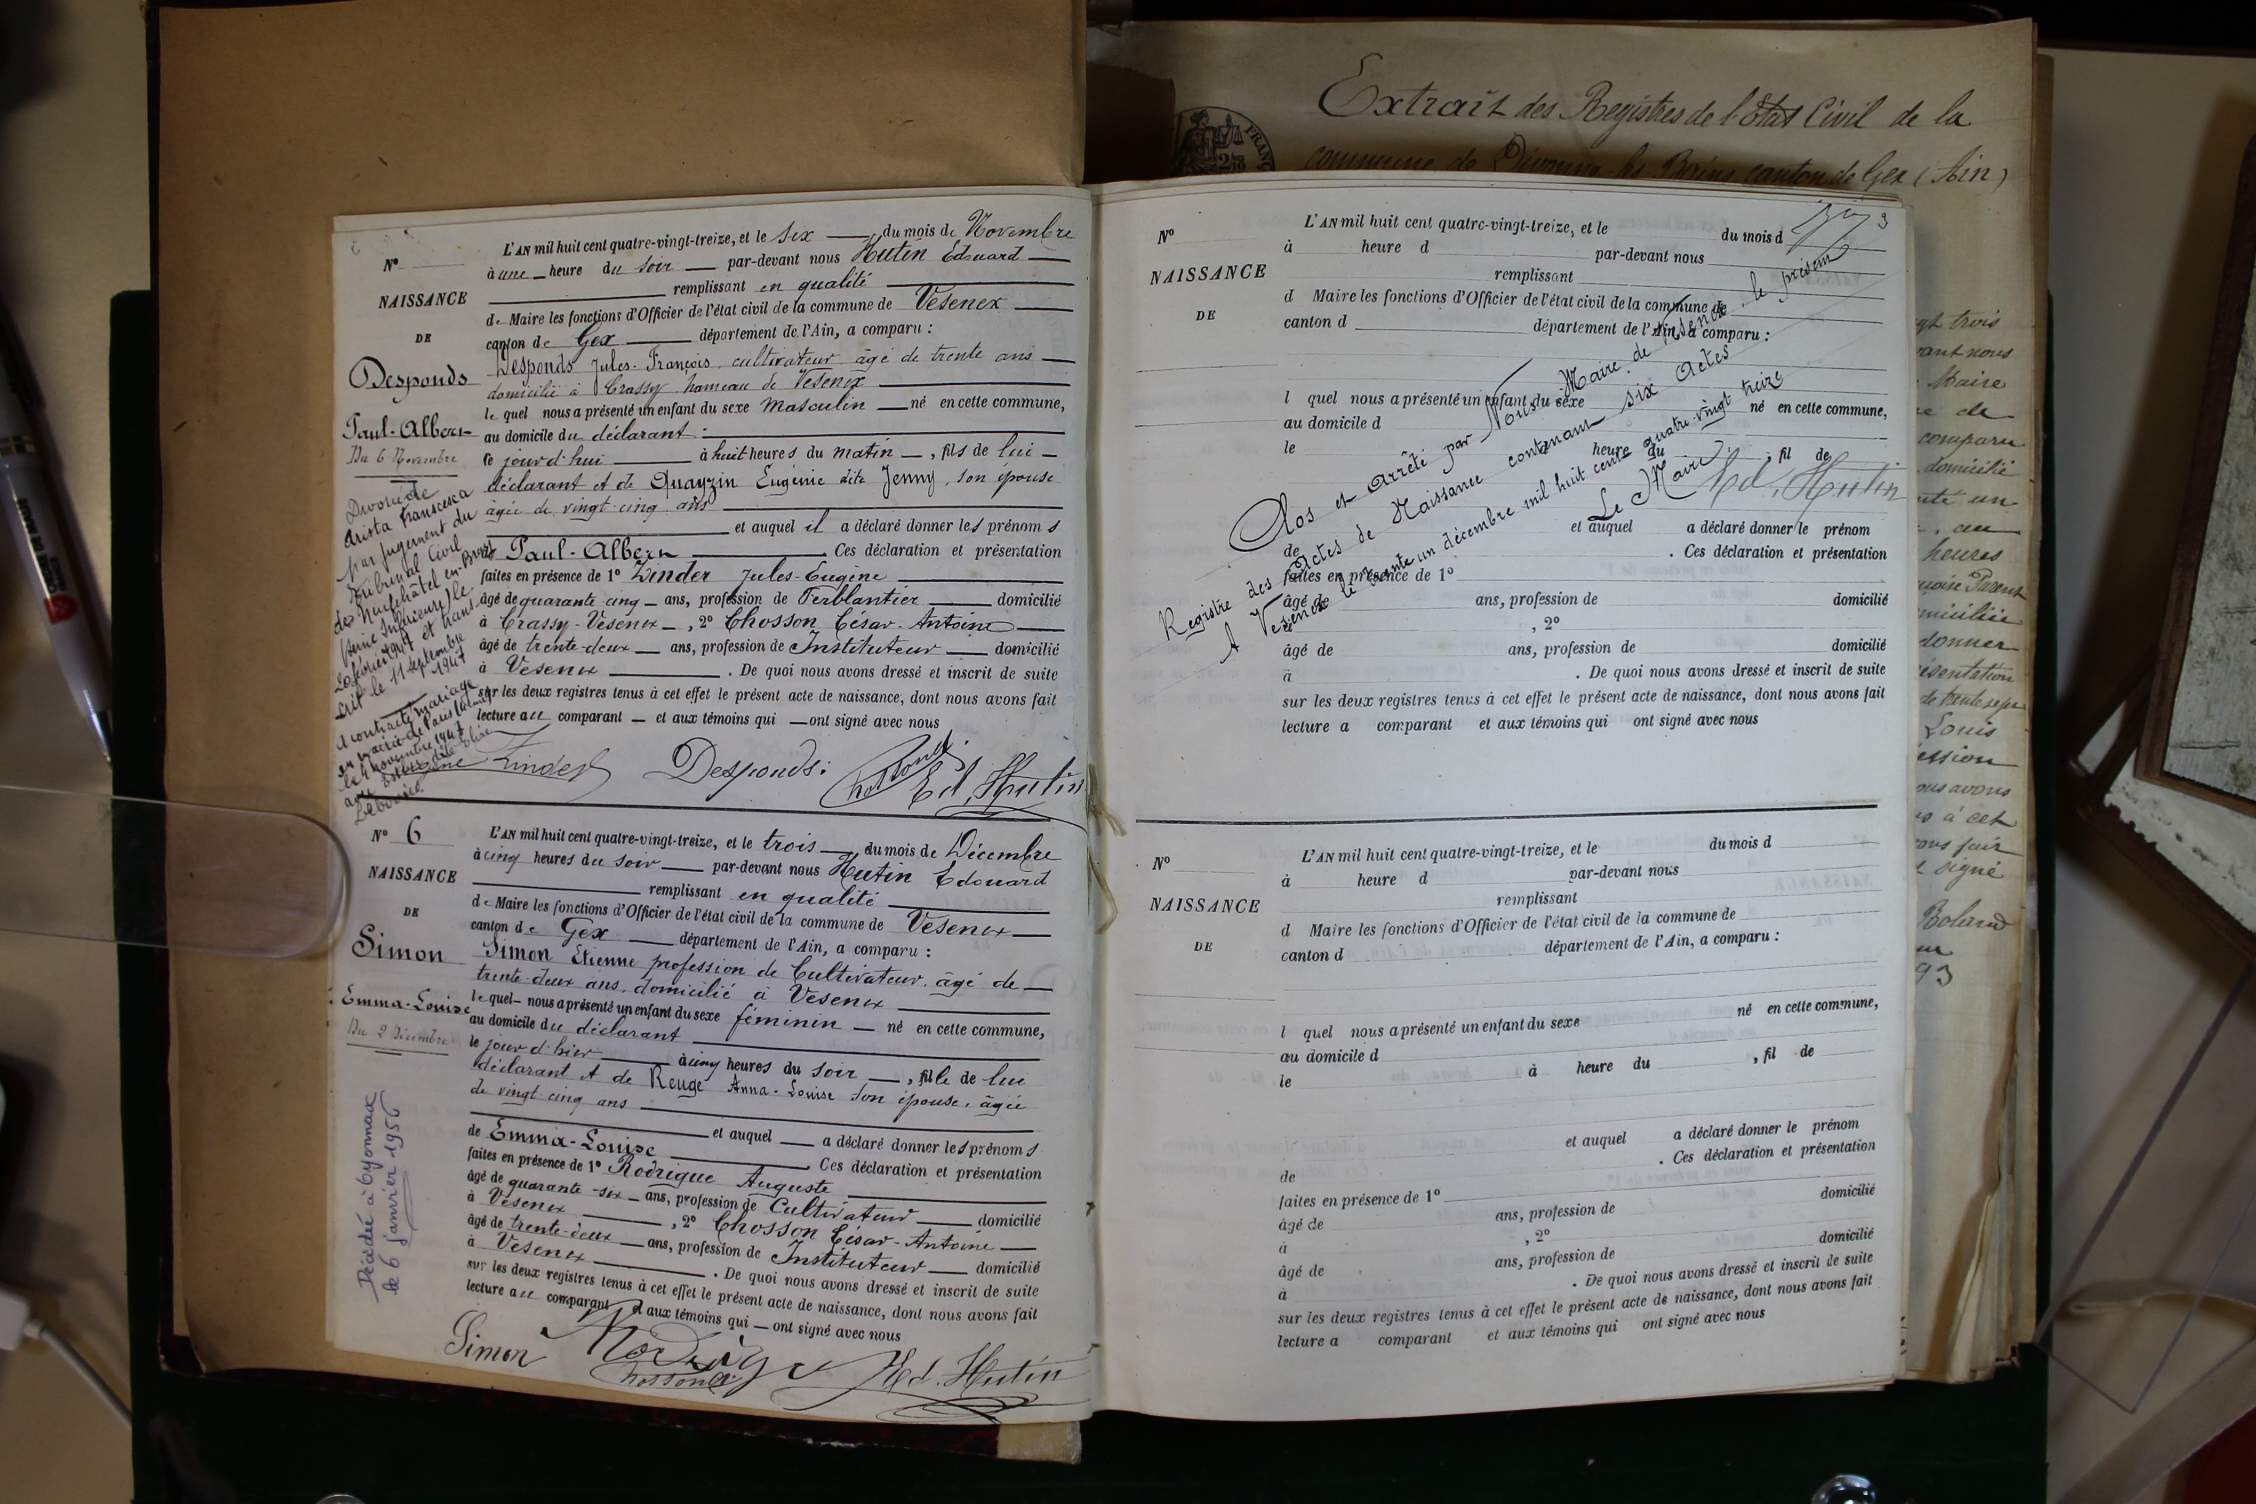 Extrait des Registres de l'Etat Civil de la
commune de Divonne les Bains canton de Gex (Ain)
L'AN mil huit cent quatre-vingt-treize, et le six du mois de Novembre
à une heure du soir par-devant nous Hutin Edouard
remplissant en qualité
de Maire les fonctions d'Officier de l'état civil de la commune de Vesenex
canton de Gex département de l'Ain, a comparu :
Desponds Jules-François cultivateur âgé de trente ans
domicilié à Crassy hameau de Vesenex
le quel nous a présenté un enfant du sexe masculin né en cette commune,
au domicile du déclarant :
le jour d'hui à huit heures du matin, fils de lui
déclarant et de Quayzin Eugénie dite Jenny, son épouse
âgée de vingt-cinq ans
et auquel il a déclaré donner les prénoms
de Paul-Albern. Ces déclaration et présentation
faites en présence de 1° Zinder Jules-Eugène
âgé de quarante cinq ans, profession de Ferblantier domicilié
à Crassy-Vesenex, 2° Chosson César-Antoine
âgé de trente-deux ans, profession de Instituteur domicilié
à Vesenex. De quoi nous avons dressé et inscrit de suite
sur les deux registres tenus à cet effet le présent acte de naissance, dont nous avons fait
lecture au comparant et aux témoins qui ont signé avec nous
Zinder Desponds: Chosson Ed. Hutin
N°
NAISSANCE
DE
Desponds
Paul-Albern
Du 6 Novembre
Divorcé de
Arista Franscesca
par jugement du
Tribunal Civil
de Neufchâtel-en-Bray
(Seine Inférieure) le
20 février 1947 et trans-
crit le 11 septembre
1947
A contracté mariage
en mairie de Paris
le 4 novembre 1947
avec
N° 6
NAISSANCE
DE
Simon
Emma-Louise
Du 2 Décembre
Décédée à Oyonnax
le 6 janvier 1956
L'AN mil huit cent quatre-vingt-treize, et le trois du mois de Décembre
à cinq heures du soir par-devant nous Hutin Edouard
remplissant en qualité
de Maire les fonctions d'Officier de l'état civil de la commune de Vesenex
canton de Gex département de l'Ain, a comparu :
Simon Etienne profession de Cultivateur, âgé de
trente-deux ans, domicilié à Vesenex
le quel nous a présenté un enfant du sexe féminin né en cette commune,
au domicile du déclarant
le jour d'hier à cinq heures du soir, fille de lui
déclarant et de Reuge Anna-Louise son épouse, âgée
de vingt-cinq ans
et auquel a déclaré donner les prénoms
de Emma-Louise. Ces déclaration et présentation
faites en présence de 1° Rodrigue Auguste
âgé de quarante-six ans, profession de Cultivateur domicilié
à Vesenex, 2° Chosson César-Antoine
âgé de trente-deux ans, profession de Instituteur domicilié
à Vesenex. De quoi nous avons dressé et inscrit de suite
sur les deux registres tenus à cet effet le présent acte de naissance, dont nous avons fait
lecture au comparant et aux témoins qui ont signé avec nous
Simon Rodrigue Ed. Hutin
Chosson
3
N°
NAISSANCE
DE
L'AN mil huit cent quatre-vingt-treize, et le du mois d
à heure d par-devant nous
remplissant
d Maire les fonctions d'Officier de l'état civil de la commune de
canton d département de l'Ain, a comparu :
l quel nous a présenté un enfant du sexe né en cette commune,
au domicile d
le heure du, fil de
et auquel a déclaré donner le prénom
de. Ces déclaration et présentation
faites en présence de 1°
âgé de ans, profession de domicilié
à, 2°
âgé de ans, profession de domicilié
à. De quoi nous avons dressé et inscrit de suite
sur les deux registres tenus à cet effet le présent acte de naissance, dont nous avons fait
lecture a comparant et aux témoins qui ont signé avec nous
Clos et arrêté par Nous Maire de Vesenex le présent
Registre des Actes de Naissance contenant six Actes
A Vesenex le trente un décembre mil huit cent quatre-vingt treize
Le Maire
Ed. Hutin
N°
NAISSANCE
DE
L'AN mil huit cent quatre-vingt-treize, et le du mois d
à heure d par-devant nous
remplissant
d Maire les fonctions d'Officier de l'état civil de la commune de
canton d département de l'Ain, a comparu :
l quel nous a présenté un enfant du sexe né en cette commune,
au domicile d
le à heure du, fil de
et auquel a déclaré donner le prénom
de. Ces déclaration et présentation
faites en présence de 1°
âgé de ans, profession de domicilié
à, 2°
âgé de ans, profession de domicilié
à. De quoi nous avons dressé et inscrit de suite
sur les deux registres tenus à cet effet le présent acte de naissance, dont nous avons fait
lecture a comparant et aux témoins qui ont signé avec nous
trois
nous
Maire
de
comparu
domicilié
un
au
heures
donner
Louis
avons
à cet
fait
signé
Boland
93